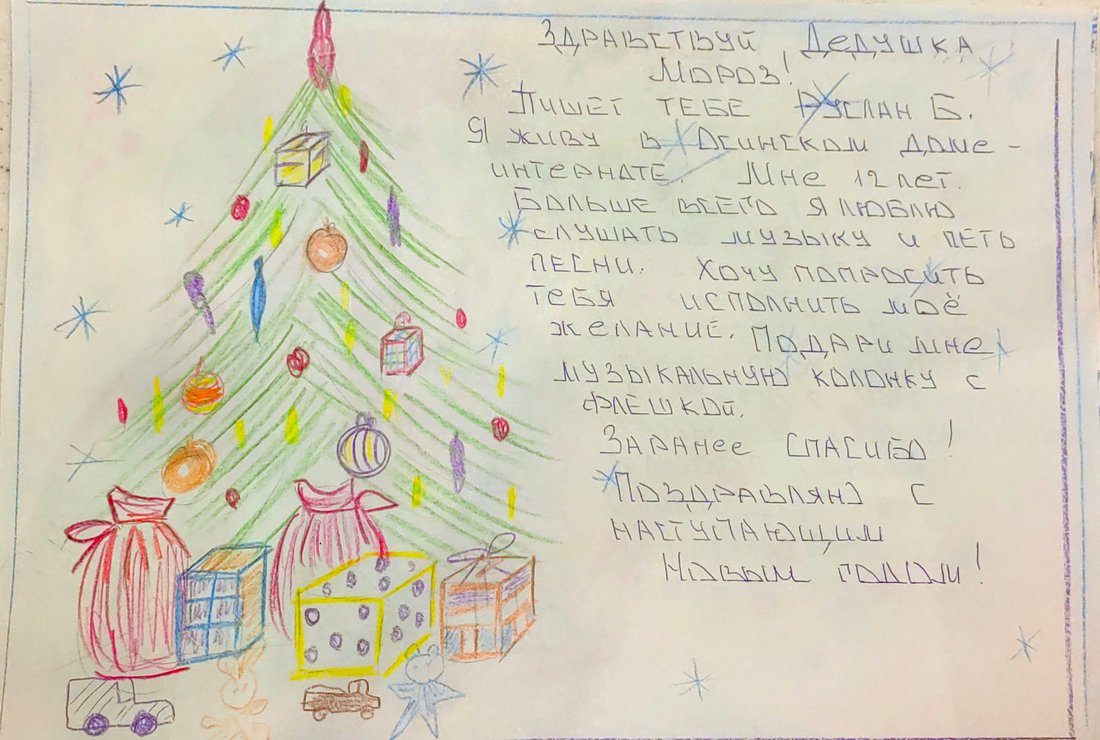 Здравствуй Дедушка
Мороз!
Пишет тебе Руслан Б.
Я живу в Осинском доме-
интернате. Мне 12 лет.
Больше всего я люблю
слушать музыку и петь
песни. Хочу попросить
тебя исполнить моё
желание. Подари мне
музыкальную колонку с
флешкой.
Заранее спасибо!
Поздравляю с
наступающим
Новым годом!